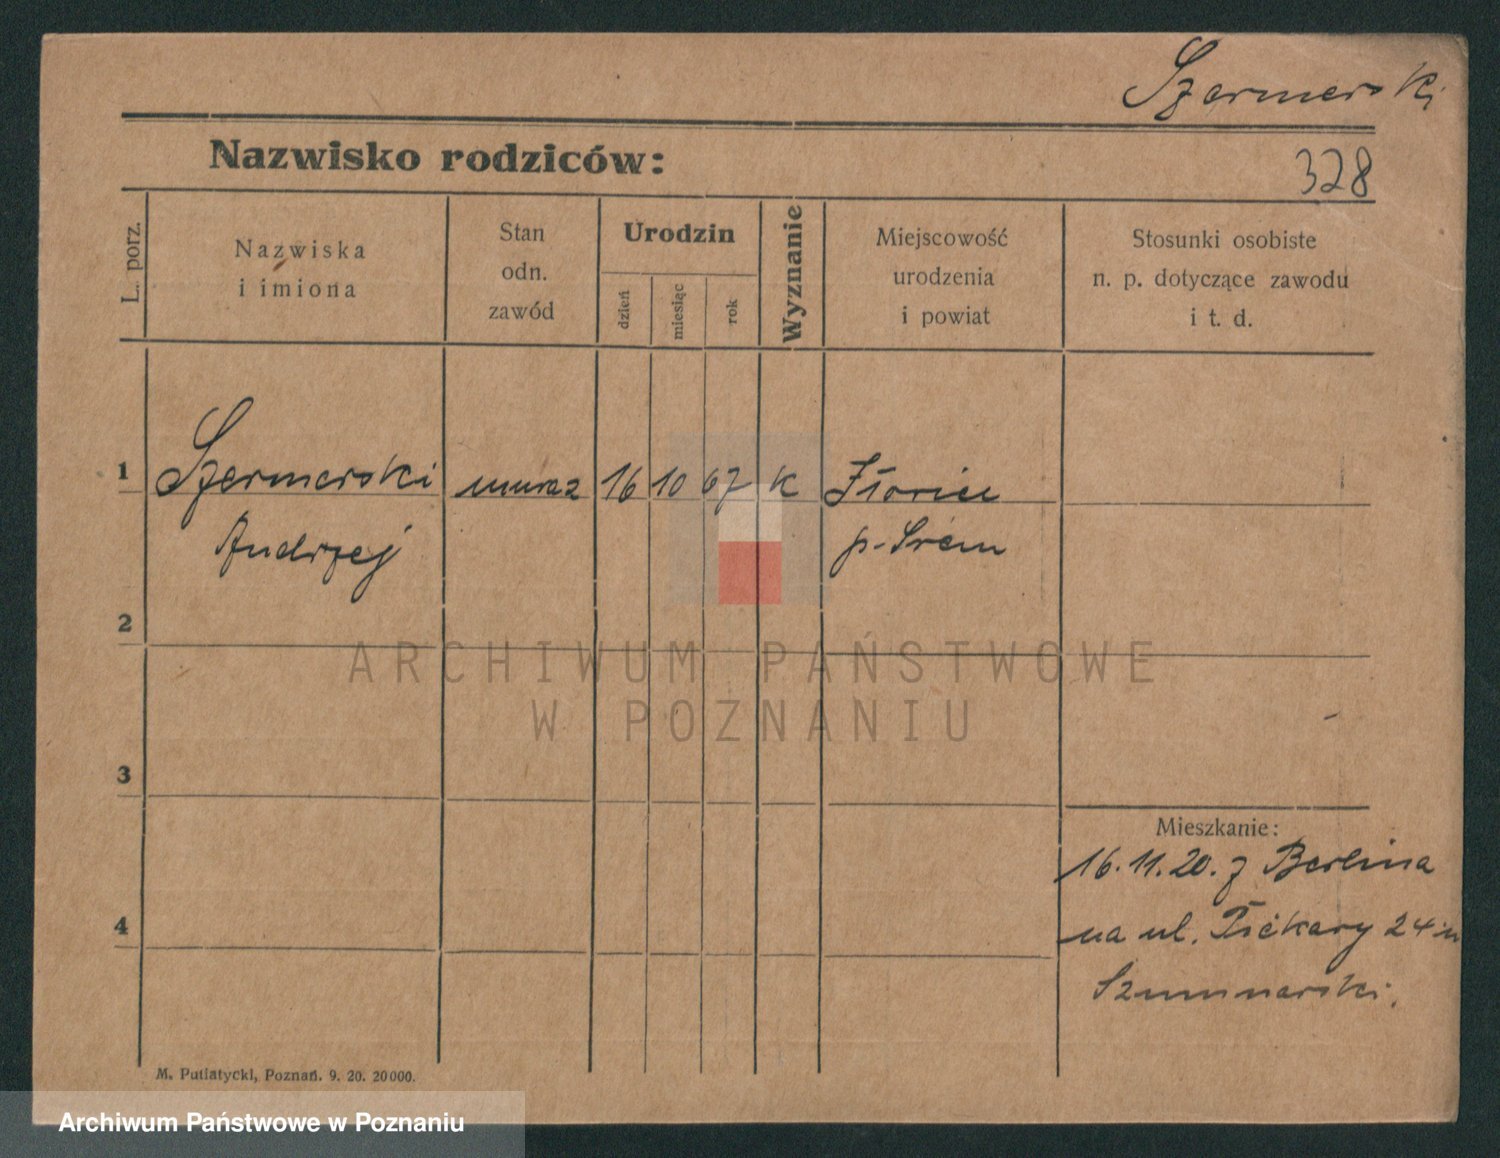 Szermerski
Nazwisko rodziców:
328
L. porz.
Nazwiska
i imiona
Stan
odn.
zawód
Urodzin
dzień
miesiąc
rok
Wyznanie
Miejscowość
urodzenia
i powiat
Stosunki osobiste
n. p. dotyczące zawodu
i t. d.
1 Szermerski muraz 16 10 67 K
Andrzej p. Śrem
2
ARCHIWUM PAŃSTWOWE
W POZNANIU
3
Mieszkanie:
16.11.20. z Berlina
na ul. 24 u
4
Szumnarski.
M. Putiatycki, Poznań. 9. 20. 20000.
Archiwum Państwowe w Poznaniu